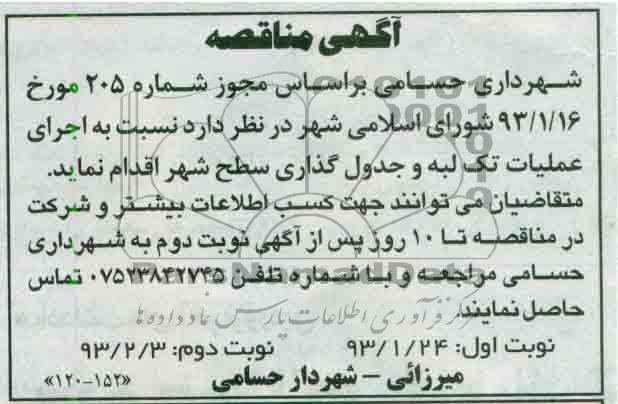 آگهی مناقصه
شهرداری حسامی براساس مجوز شماره ۲۰۵ مورخ
۹۳/۱/۱۶ شورای اسلامی شهر در نظر دارد نسبت به اجرای
عملیات تک لبه و جدول گذاری سطح شهر اقدام نماید.
متقاضیان می توانند جهت کسب اطلاعات بیشتر و شرکت
در مناقصه تا ۱۰ روز پس از آگهی نوبت دوم به شهرداری
حسامی مراجعه و با شماره تلفن ۰۷۵۲۳۸۴۲۷۴۵ تماس
حاصل نمایند.
مرکز فرآوری اطلاعات پارس نماد داده ها
نوبت اول: ۹۳/۱/۲۴ نوبت دوم: ۹۳/۲/۳
میرزائی – شهردار حسامی
«۱۲۰-۱۵۲»